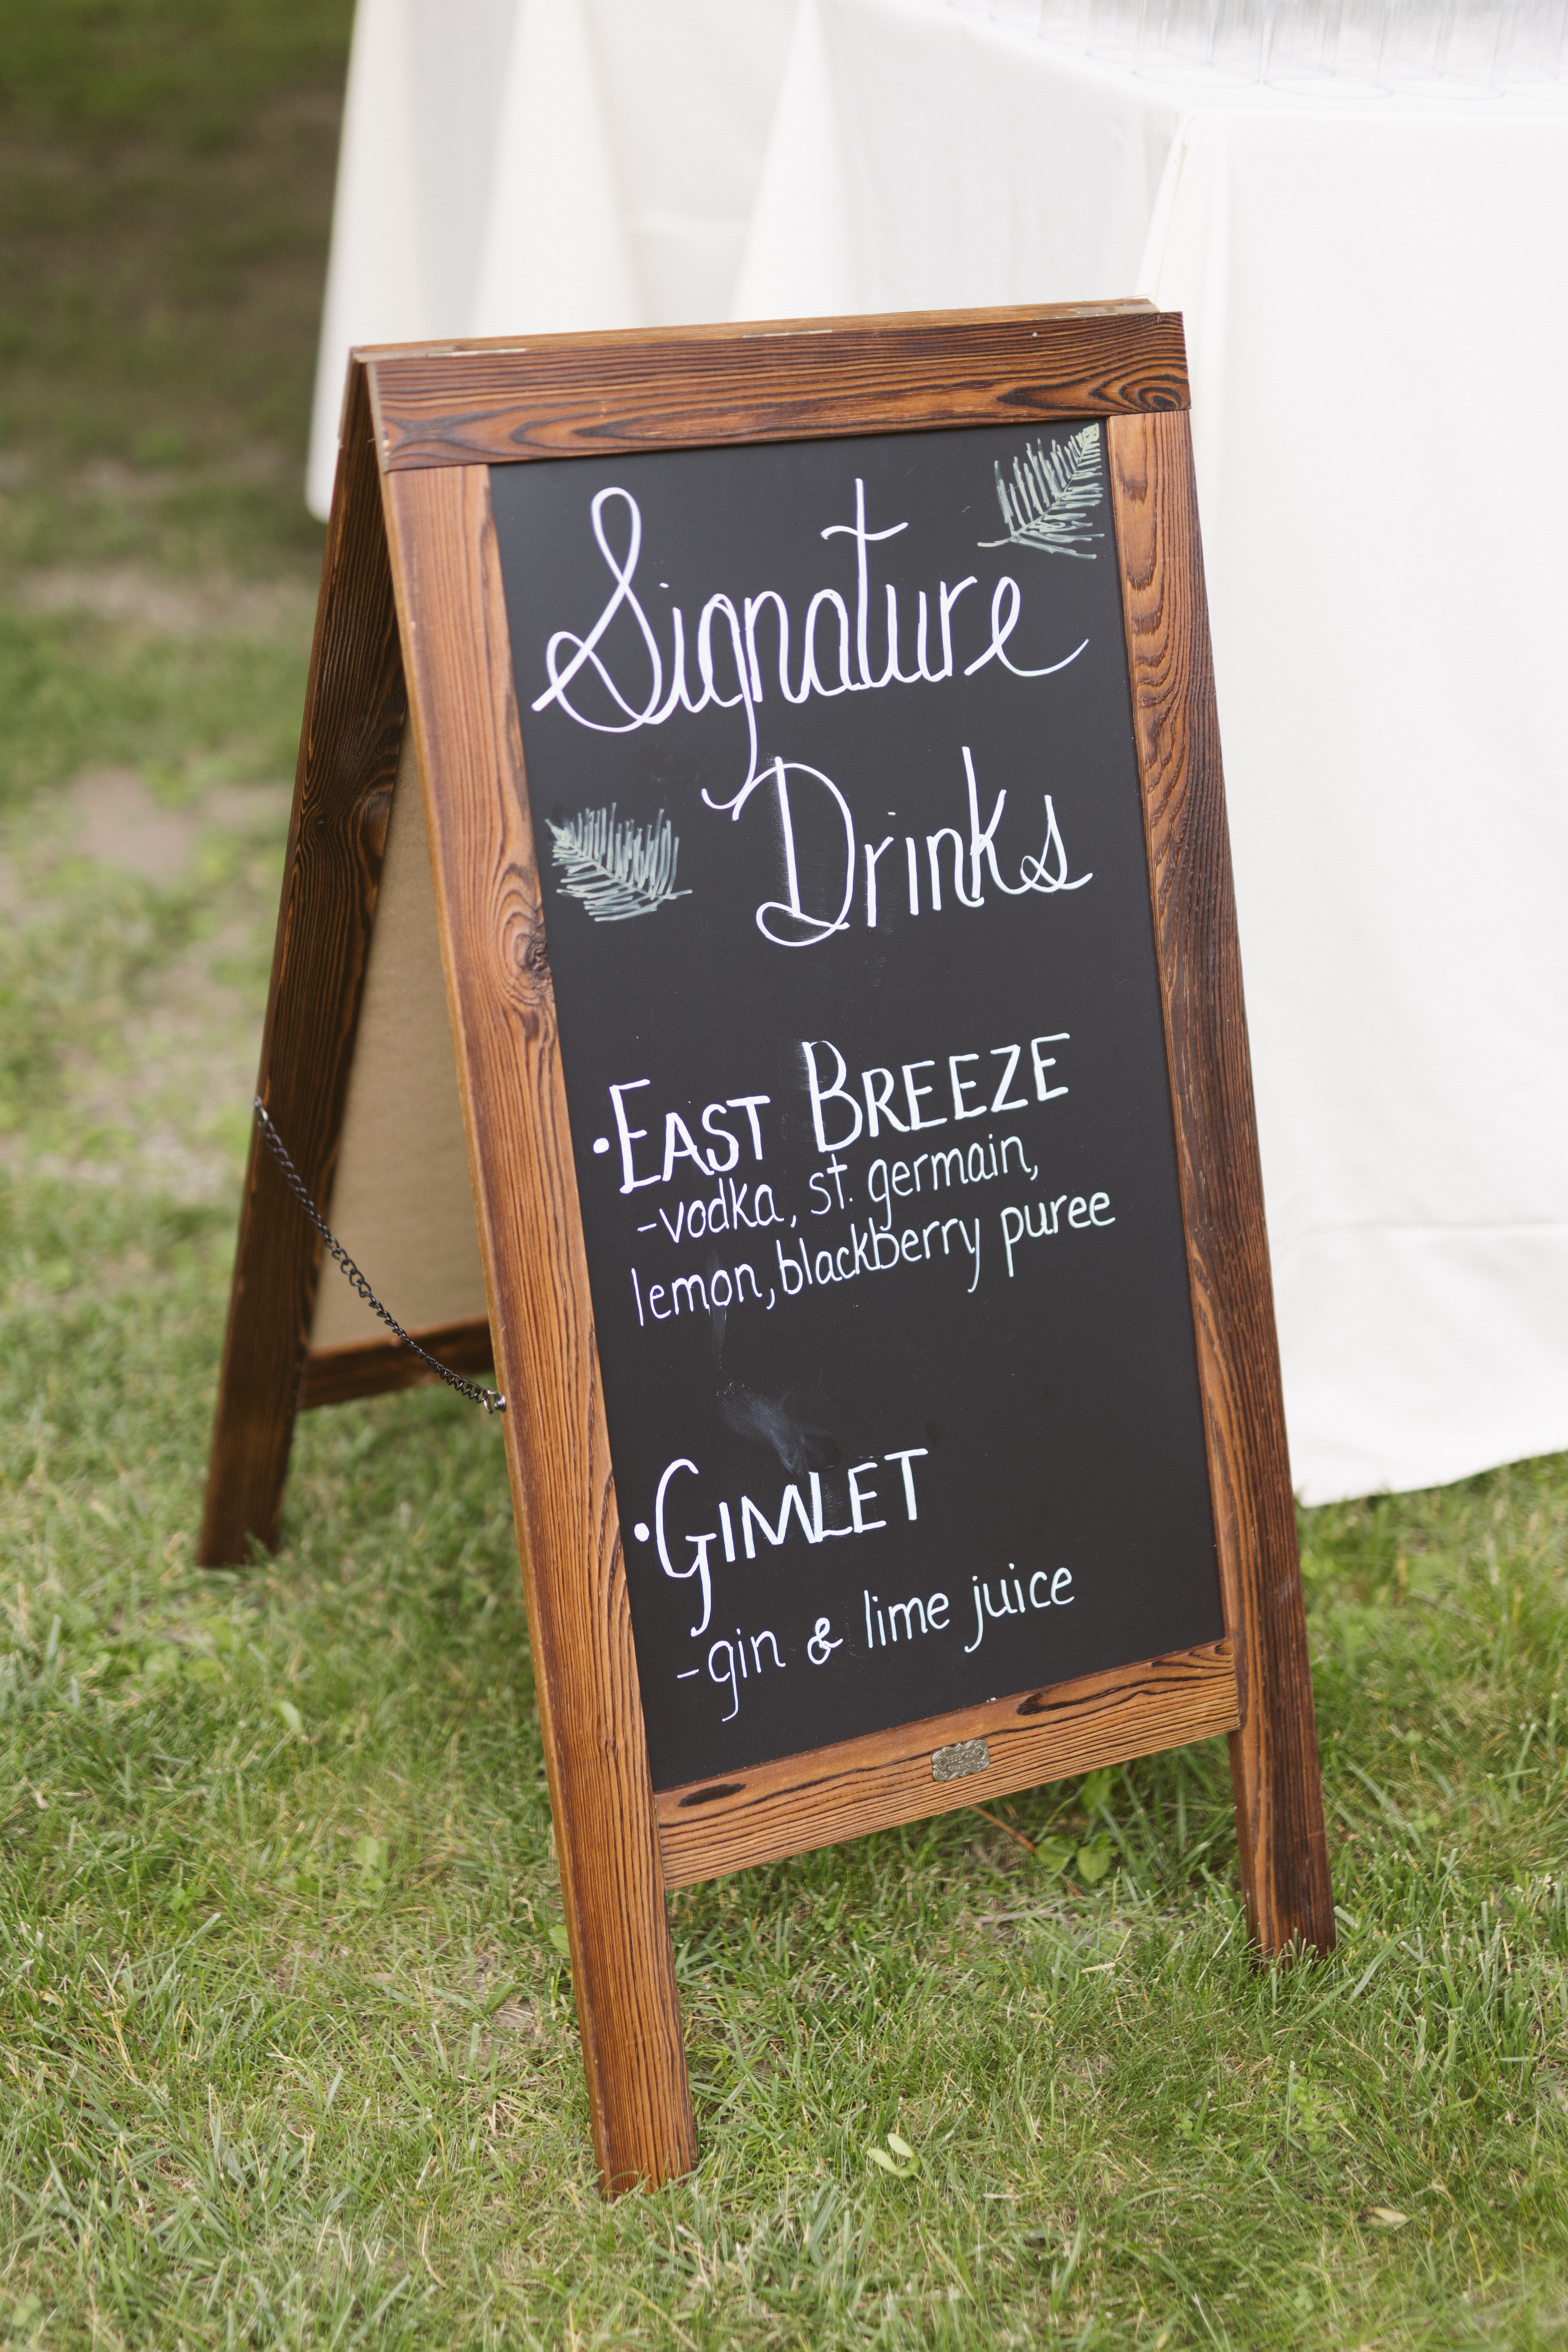 Signature
Drinks
• EAST BREEZE
- vodka, st. germain,
lemon, blackberry puree
• GIMLET
- gin & lime juice